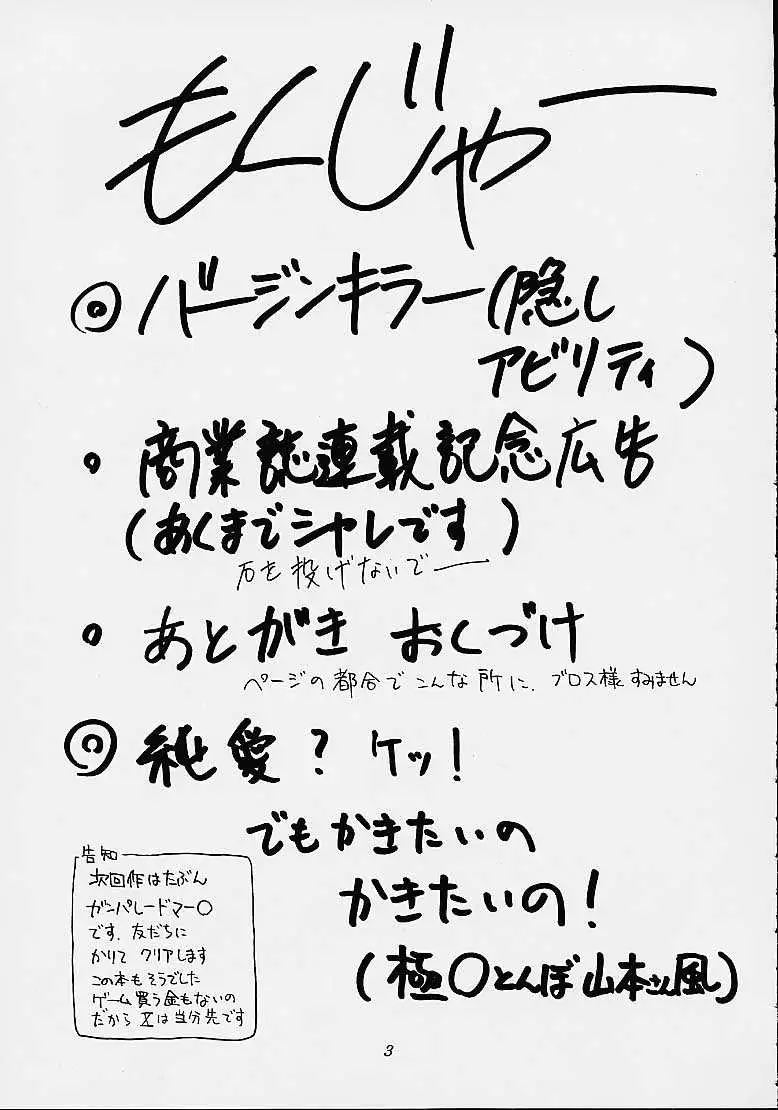 もくじゃー
◎バージンキラー(隠し
アビリティ)
・商業誌連載記念広告
(あくまでシャレです)
石を投げないでー
・あとがき おくづけ
ページの都合でこんな所に、ブロス様すみません
◎純愛? ケッ!
でもかきたいの
かきたいの!
(極○とんぼ山本さん風)
告知
次回作はたぶん
ガンパレードマー○
です.友だちに
かりて クリアします
この本もそうでした
ゲーム買う金もないの
だから Xは当分先です
3